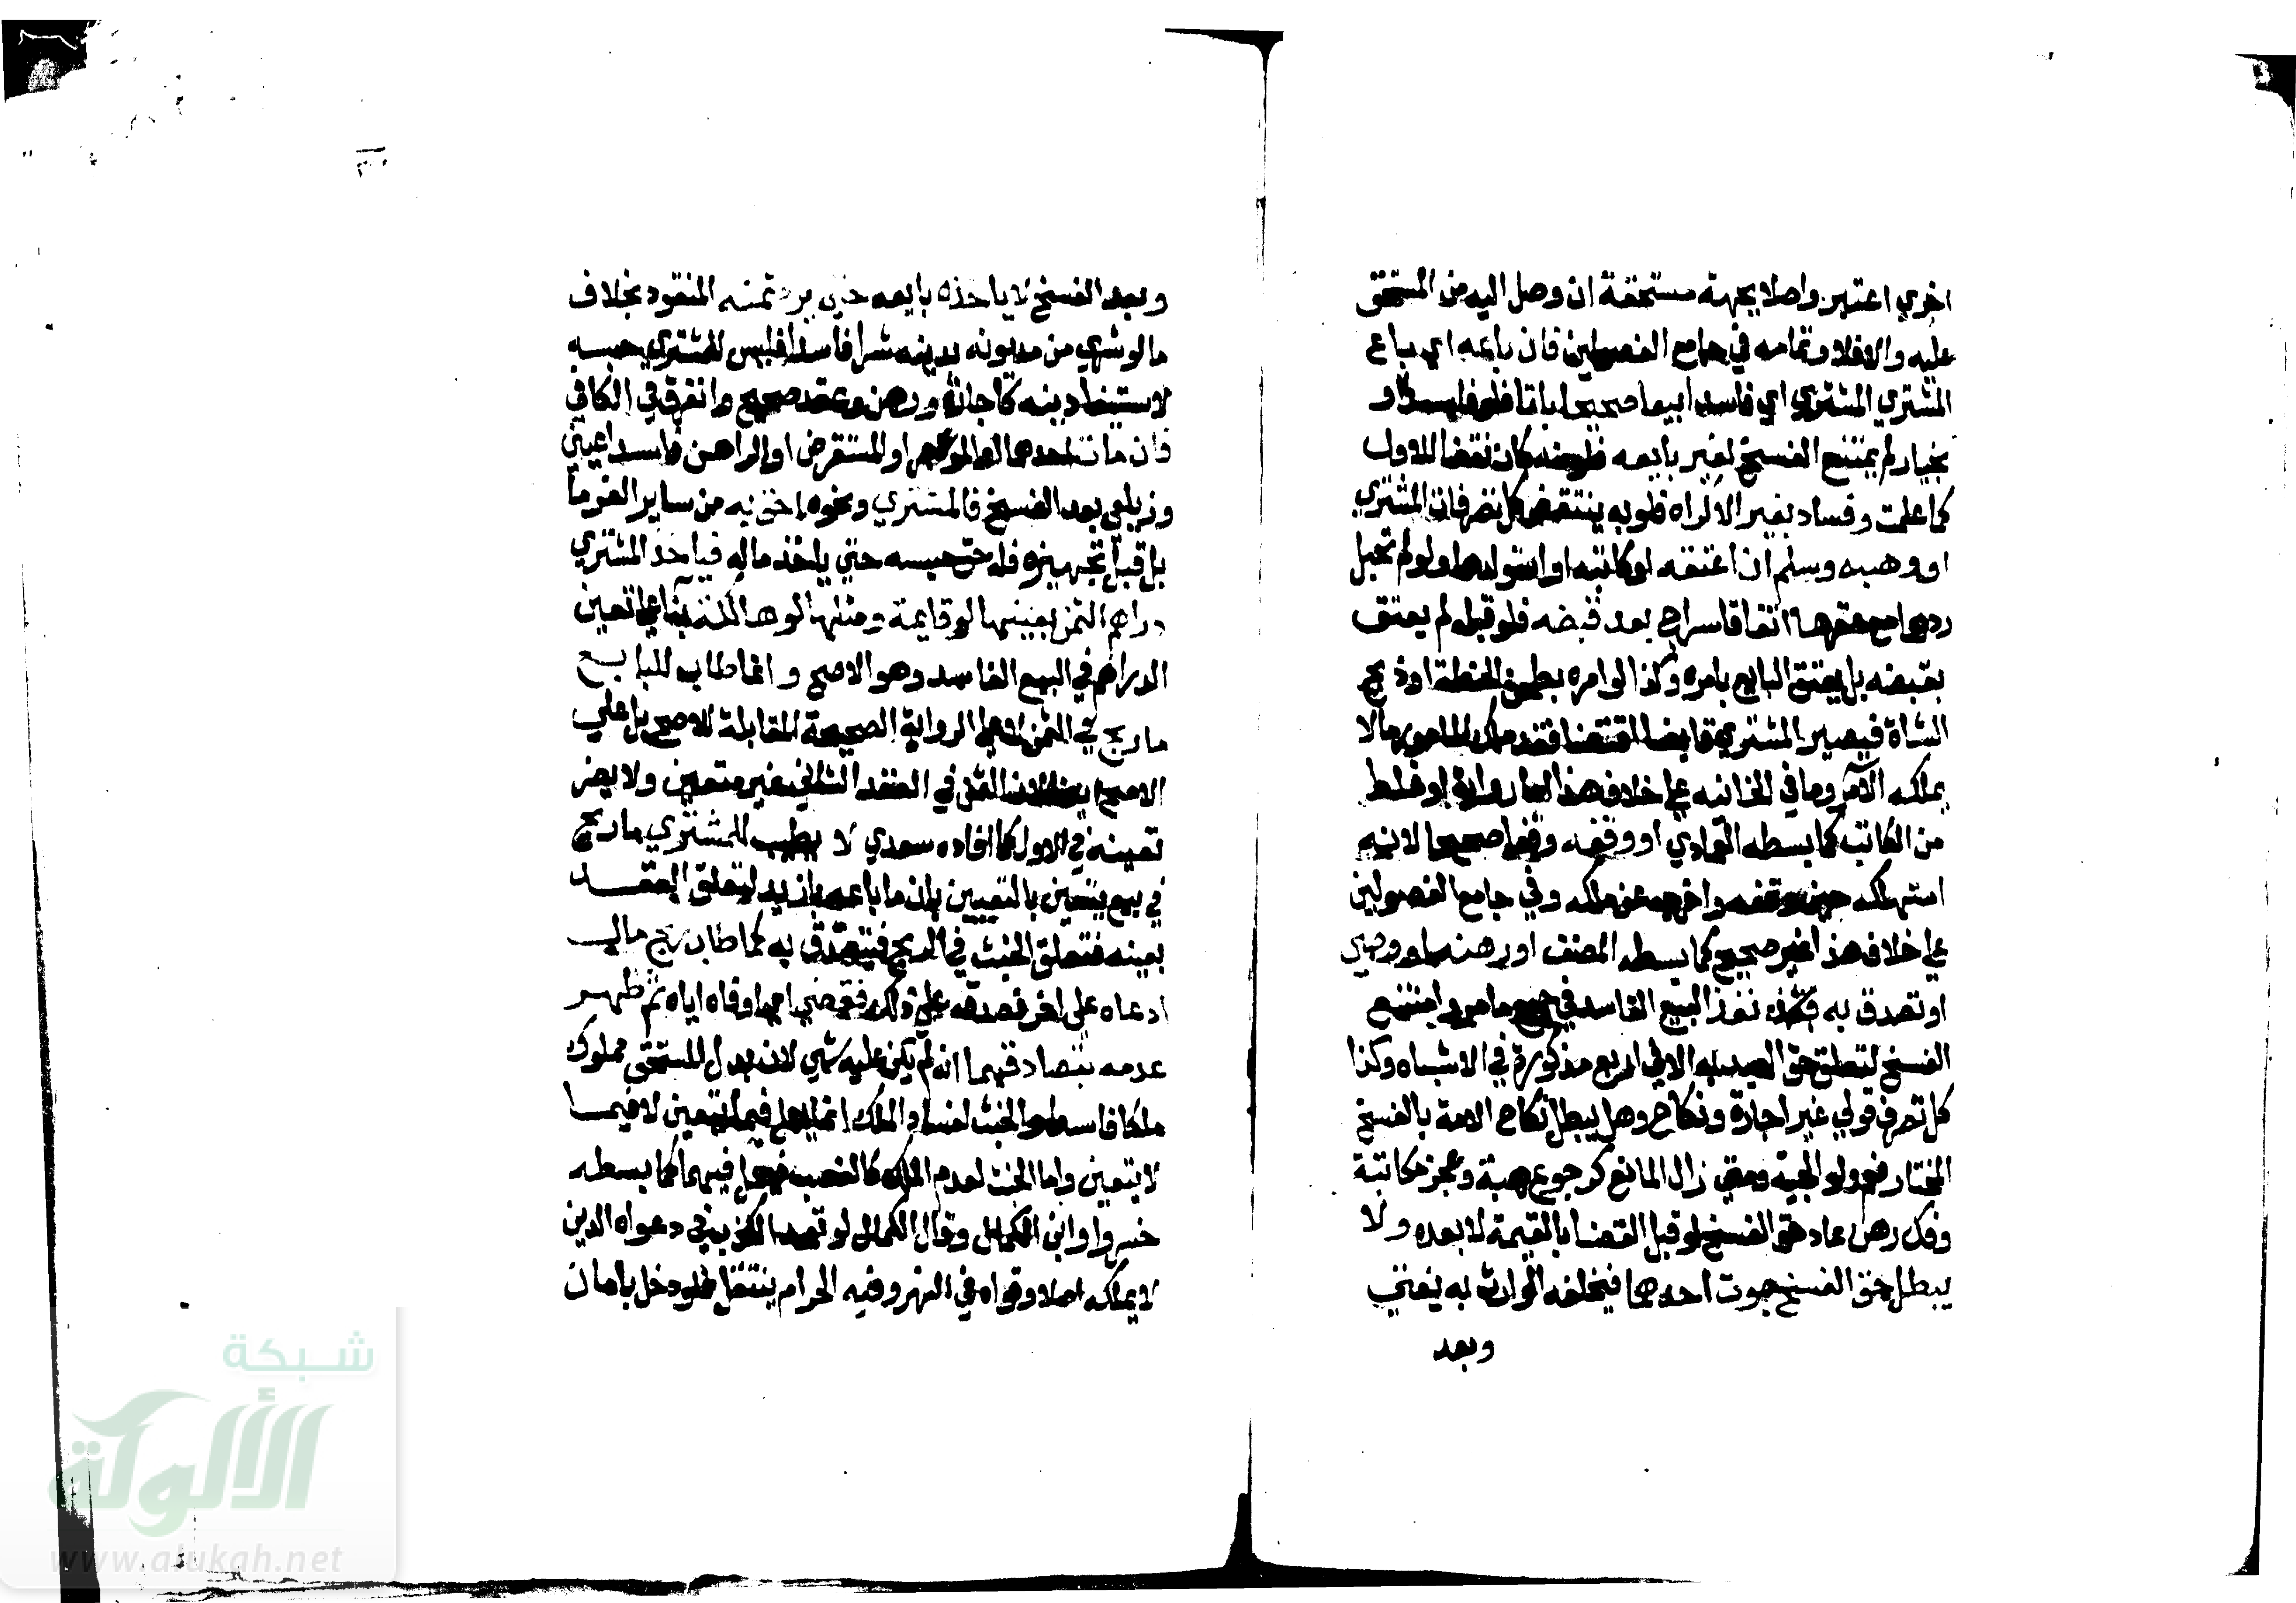 اخري اعتبر واصلا بجهة مستحقة ان وصل اليه من المستحق
عليه والا فلا وتمامه في جامع الفصولين فان باعه اي باع
المشتري المشتري اي فاسدا بيعا صحيحا باتا فلو فاسدا او
بخيار لم يمتنع الفسخ لغير بايعه فلو منه كان نقضا للاول
كما علمت وفساد بغير الاكراه فلو به ينتقض كل تصرفات المشتري
او وهبه وسلم او اعتقه او كاتبه او استولدها ولو لم تحبل
ردها مع عقرها اتفاقا سراج بعد قبضه فلو قبله لم يعتق
بقبضه بل يعتق البايع بامره وكذا لو امره بطحن الحنطة او ذبح
الشاة فيصير المشتري قابضا اقتضا فقد ملك المامور مالا
يملكه الآمر وما في الخانيه علي خلاف هذا اما رواية او غلط
من الكاتب كما بسطه العمادي او وقفه وقفا صحيحا لانه
استهلكه حين وقفه واخرجه عن ملكه وفي جامع الفصولين
علي خلاف هذا غير صحيح كما بسطه المصنف او رهنه او اوصي
او تصدق به نفذ البيع الفاسد في جميع ما مر وامتنع
الفسخ لتعلق حق العبد به الا في اربع مذكورة في الاشباه وكذا
كل تصرف قولي غير اجارة ونكاح وهل يبطل نكاح الامة بالفسخ
المختار نعم ولوالجية ومتي زال المانع كرجوع هبة وعجز مكاتبة
وفك رهن عاد حق الفسخ لو قبل القضا بالقيمة لا بعده ولا
يبطل حق الفسخ بموت احدهما فيخلفه الوارث به يفتي
وبعد
وبعد الفسخ لا ياخذه بايعه حتي يرد ثمنه المنقود بخلاف
ما لو شري من مديونه بدينه شرا فاسدا فليس للمشتري حبسه
لاستيفا دينه كاجارة ورهن وعقد صحيح والفرق في الكافي
فان مات احدهما او الموجر او المستقرض او الراهن فاسدا عيني
وزيلعي بعد الفسخ فالمشتري ونحوه احق به من ساير الغرما
بل قبل تجهيزه فله حق حبسه حتي ياخذ ماله فياخذ المشتري
دراهم الثمن بعينها لو قايمة ومثلها لو هالكة بنا علي تعين
الدراهم في البيع الفاسد وهو الاصح وانما طاب للبايع
ما ربح في الثمن لا علي الرواية الصحيحة المقابلة للاصح بل علي
الاصح ايضا لان الثمن في العقد الثاني غير متعين ولا يضر
تعينه في الاول كما افاده سعدي لا يطيب للمشتري ما ربح
في بيع يتعين بالتعيين بان باعه بازيد لتعلق العقد
بعينه فتعلق الخبث في الربح فيتصدق به كما طاب ربح مال
ادعاه علي اخر فصدقه علي ذلك فقضي اي اوفاه اياه ثم ظهر
عدمه بتصادقهما انه لم يكن عليه شي لان بدل المستحق مملوك
ملكا فاسدا والخبث لفساد الملك انما يعمل فيما يتعين لا فيما
لا يتعين واما الخبث لعدم الملك كالغصب فيعمل فيهما كما بسطه
خسروا وابن الكمال وقال الكمال لو تعمد الكذب في دعواه الدين
لا يملكه اصلا وقواه في النهر وفيه الحرام ينتقل فلو دخل بامان
شبكة
الألوكة
www.alukah.net